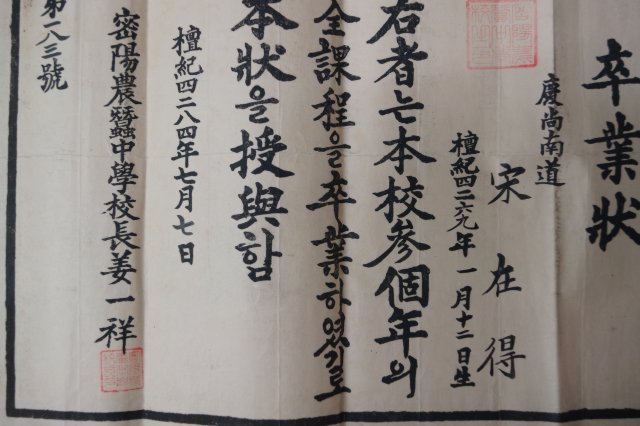 卒業狀
慶尚南道
宋在得
檀紀四二六九年一月十二日生
右者는本校參個年의
全課程을卒業하였기로
本狀을授與함
檀紀四二八四年七月七日
密陽農蠶中學校長姜一祥
第一八三號